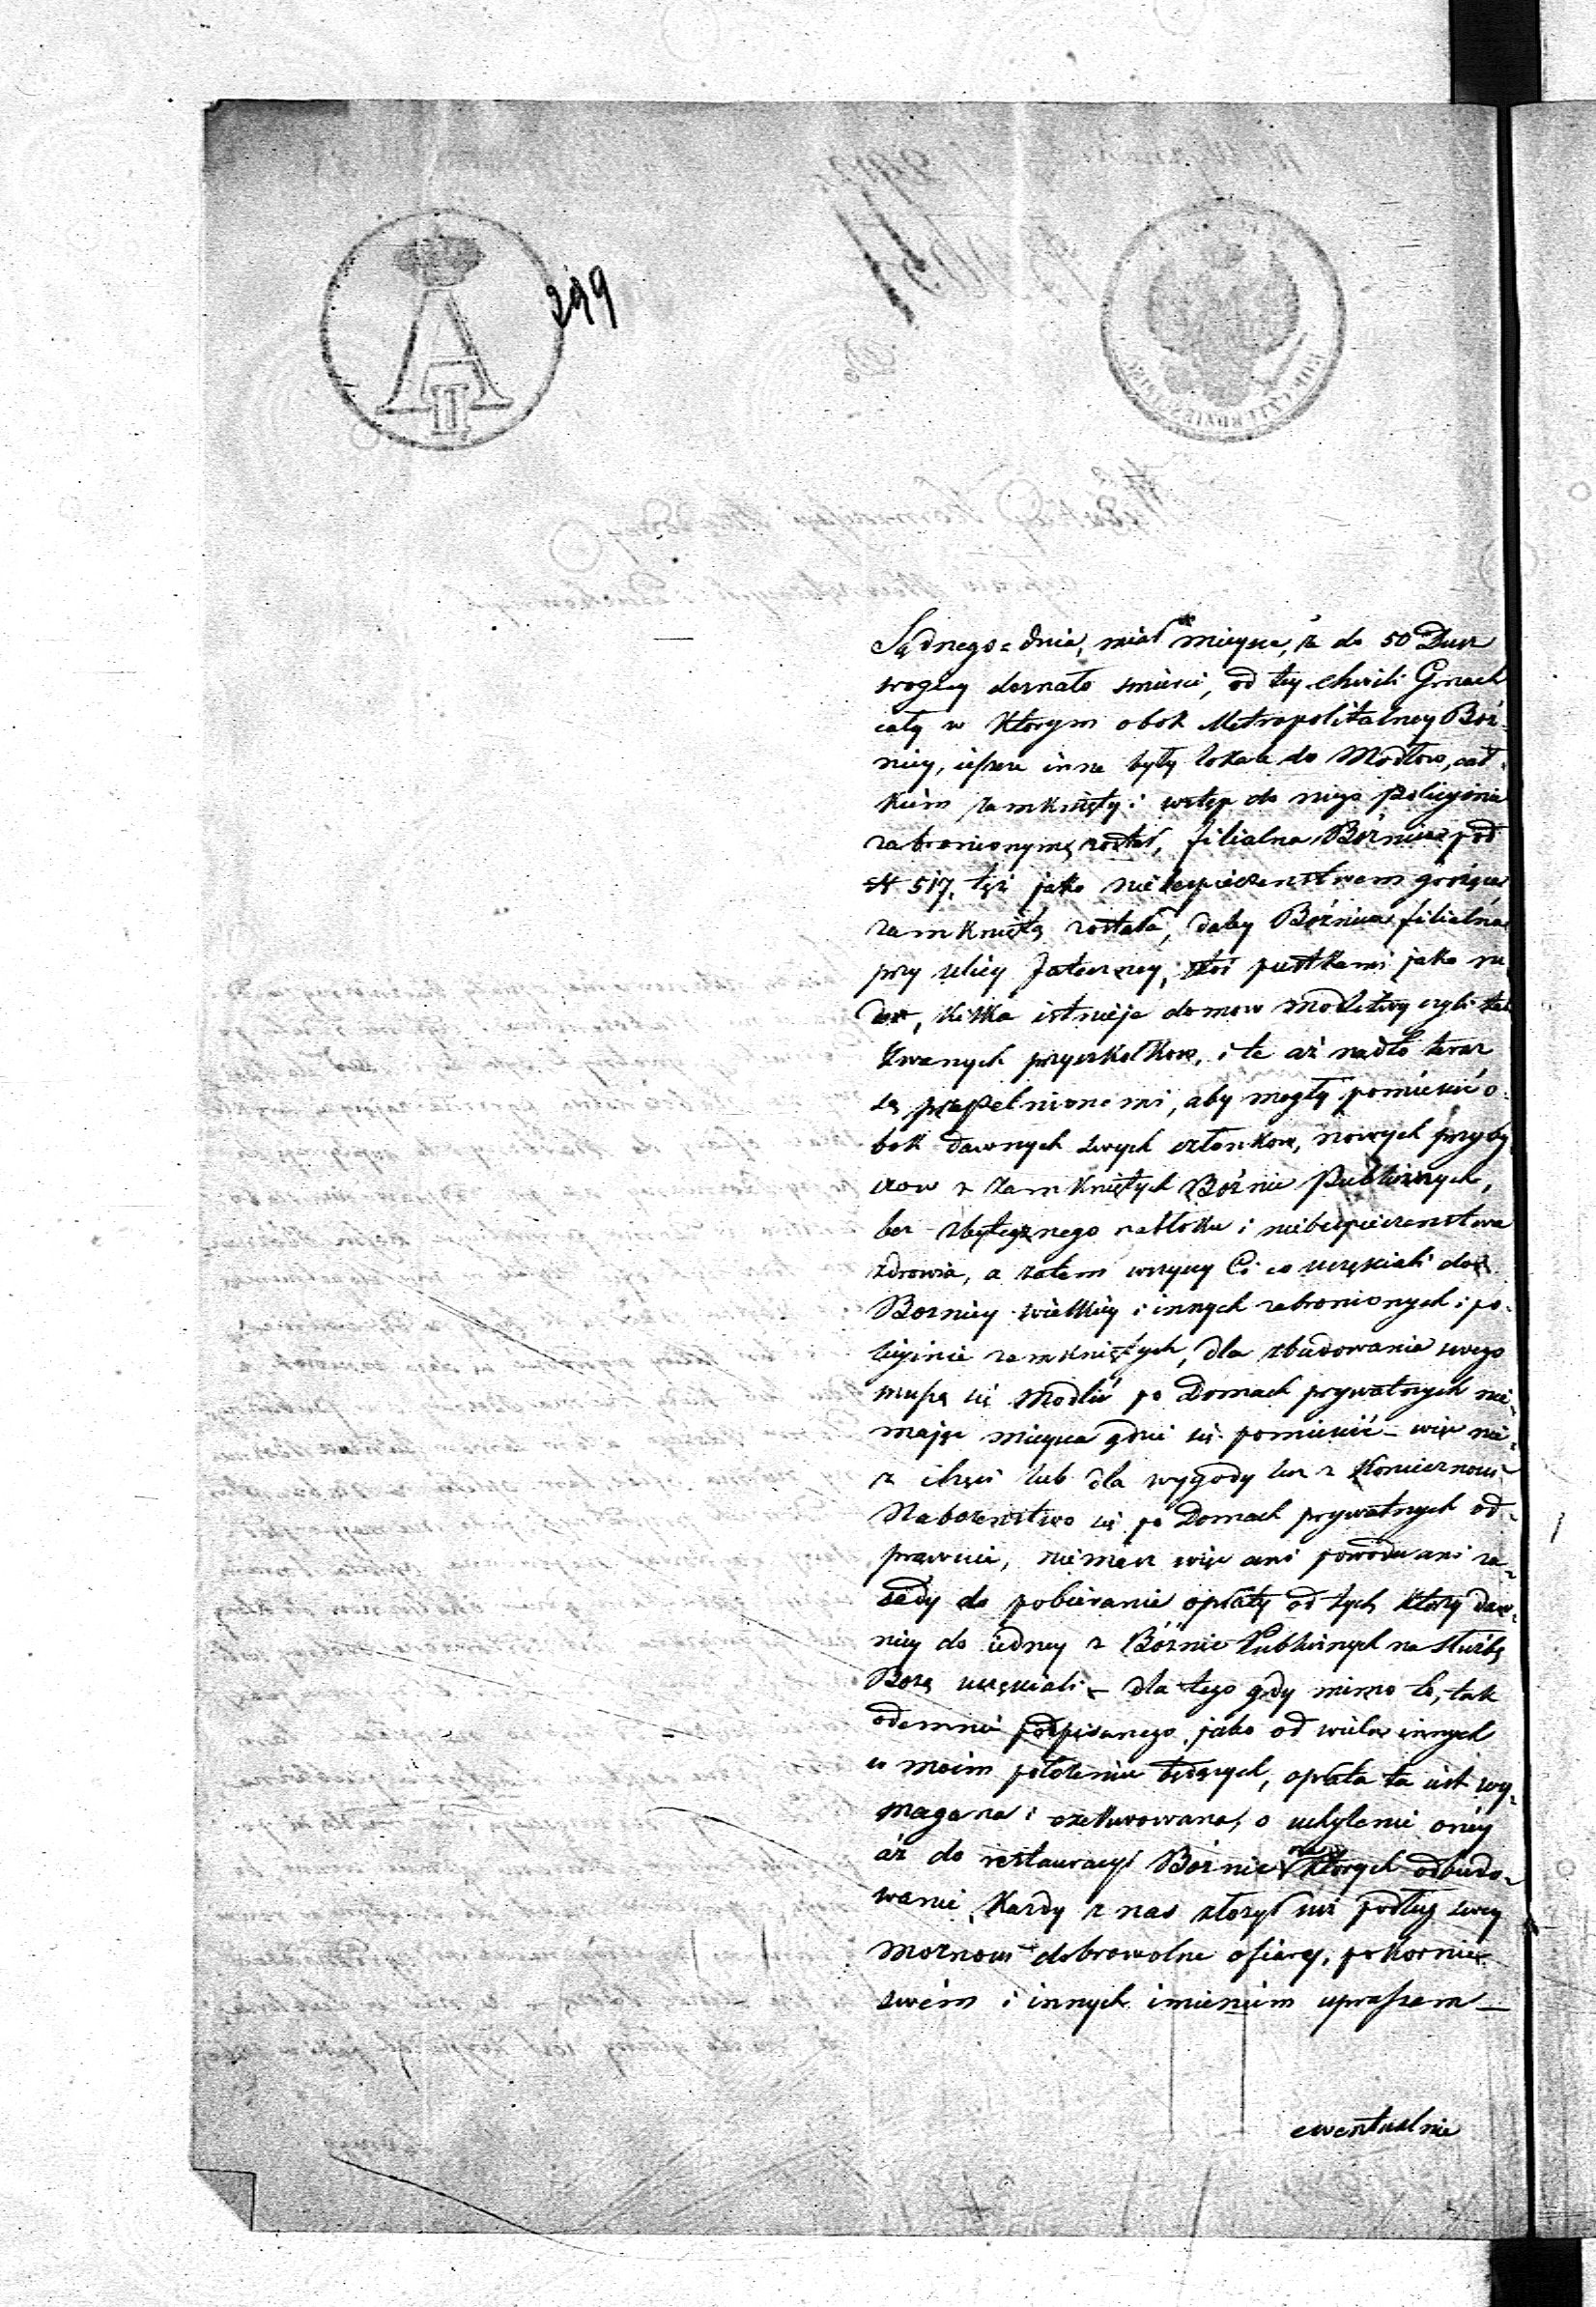 299
A
II
Sądnego=dnia, miał mieysce, iż do 50 Dusz
srogiey doznało smierci, od tey chwili Gmach
cały w Ktorym obok Metropolitalney Boż-
nicy, ieszcze inne były lokale do Modłow, cał-
kiem zamknięty i wstęp do niego policyinie
zabronionym został, filialna Bożnica pod
N 517, też jako niebezpieczenstwem grożąca
zamkniętą została, daley Bożnica filialna
przy ulicy Jateczney, stoi pustkami jako
kilka istnieje domow modlitwy czyli tak
zwanych przyszkolkow, i te aż nadto teraz
są przepełnionemi, aby mogły pomieścić o-
bok dawnych swych członkow, nowych przyby
czow z zamkniętych Bożnic Publicznych,
bez zbytecznego natłoku i niebezpieczenstwa
zdrowia, a zatem wszyscy Ci co uczęsczali do
Boznicy wielkiey i innych zabronionych i po-
licyinie zamkniętych, dla zbudowania swego
muszą się modlić po Domach prywatnych nie-
mając mieysca gdzie się pomieścić – więc nie
z chęci lub dla wygody lecz z Konieczności
Nabożenstwo się po Domach prywatnych od-
prawuie, niemasz więc ani powodu ani za-
sady do pobierania opłaty od tych ktorzy daw-
niey do iedney z Bóżnic Publicznych na służbę
Bożą uczęsczali – dla tego gdy mimo to, tak
odemnie podpisanego, jako od wielu innych
w moim położeniu będących, opłata ta iest wy-
magana i exekwowana, o uchylenie oney
aż do restauracyi Bożnic na ktorych odbudo-
wanie, Każdy z nas złożył już podług swey
możnosci dobrowolne ofiary, pokornie
swém i innych imieniem upraszam –
ewentualnie